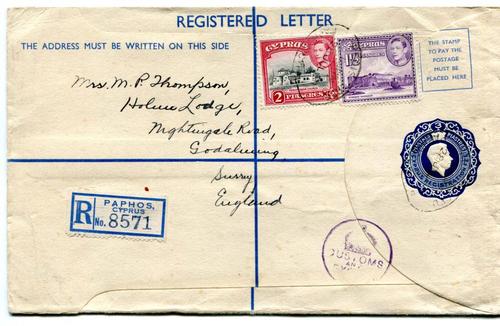 REGISTERED LETTER
THE ADDRESS MUST BE WRITTEN ON THIS SIDE
THE STAMP
TO PAY THE
POSTAGE
MUST BE
PLACED HERE
CYPRUS
2 PIASTRES 2
CYPRUS
1½
Mrs. M. P. Thompson,
Holme Lodge,
Nightingale Road,
Godalming,
Surry,
England
R
PAPHOS,
CYPRUS
No. 8571
3
CUSTOMS
AND